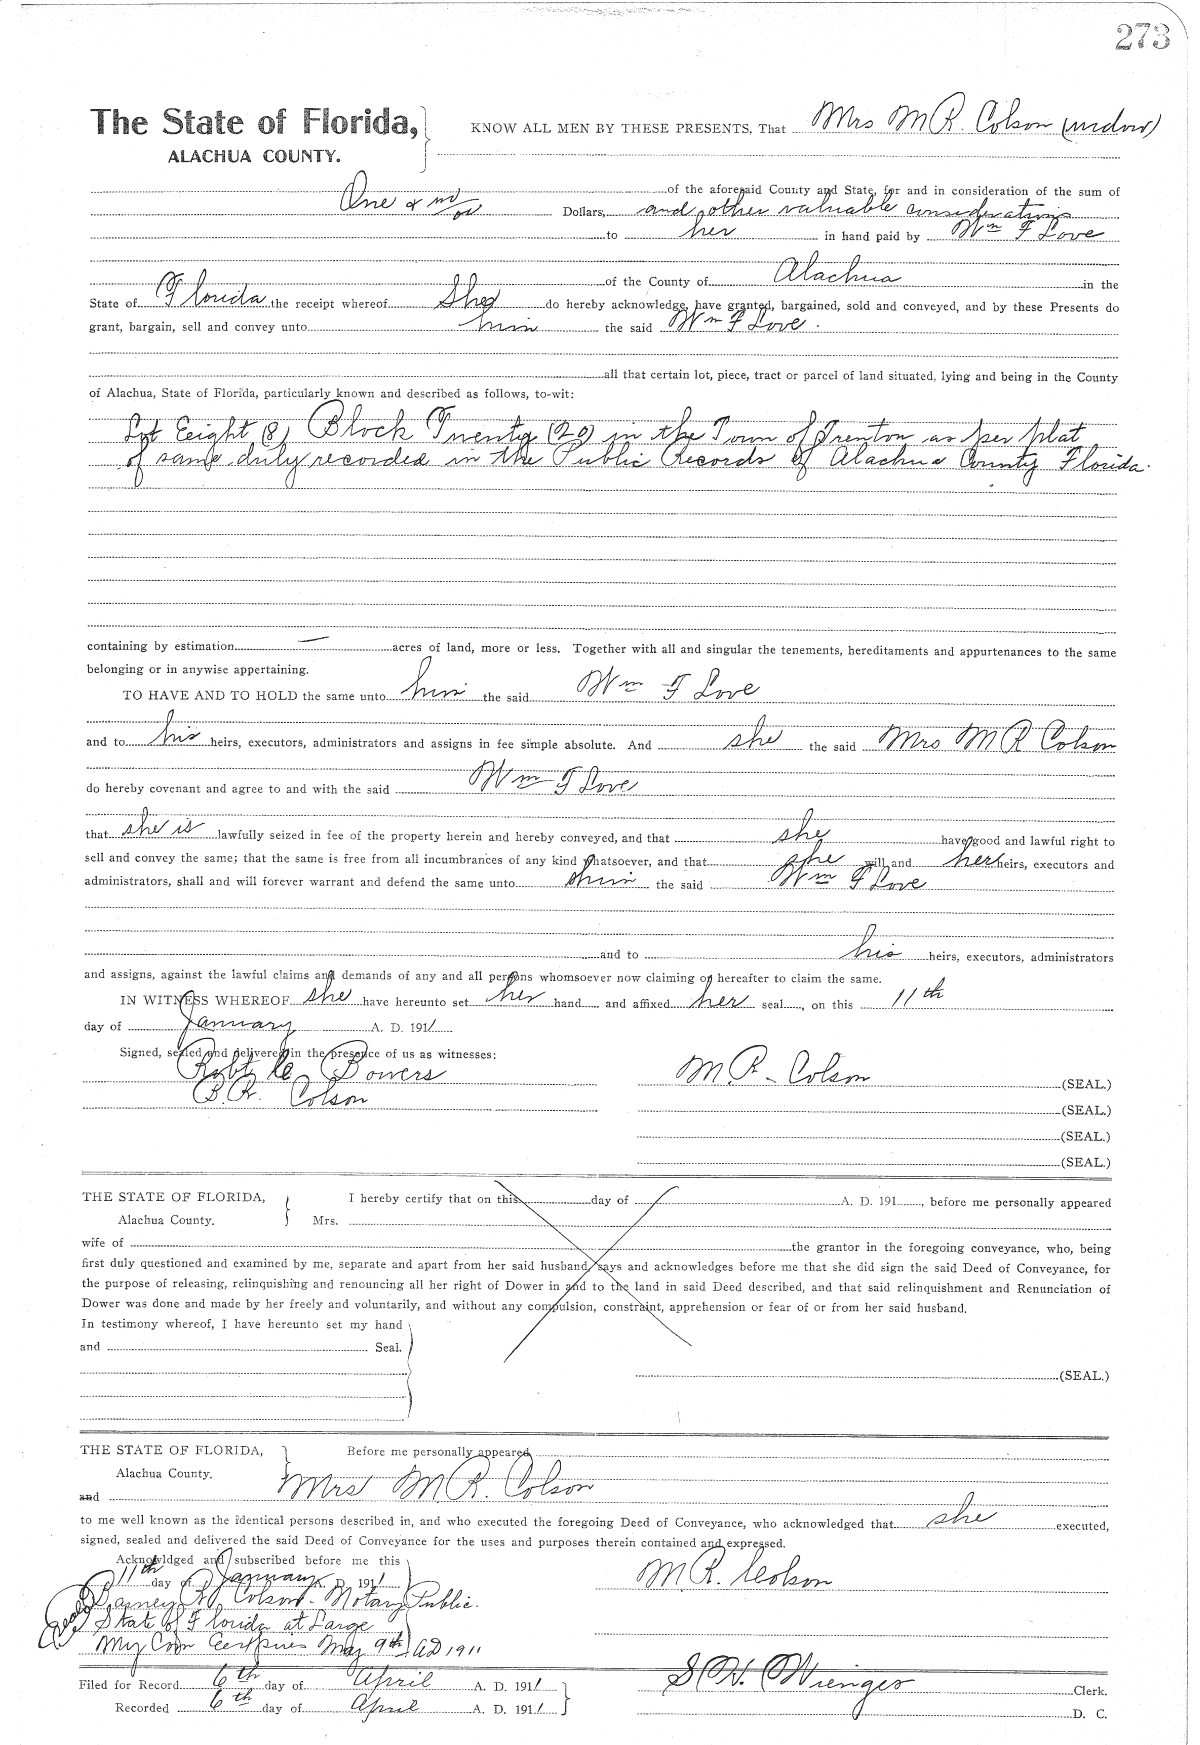 273
The State of Florida,
ALACHUA COUNTY.
KNOW ALL MEN BY THESE PRESENTS, That Mrs M R. Colson (widow)
of the aforesaid County and State, for and in consideration of the sum of
One & no/00 Dollars, and other valuable considerations
to her in hand paid by Wm F Love
of the County of Alachua in the
State of Florida the receipt whereof She do hereby acknowledge, have granted, bargained, sold and conveyed, and by these Presents do
grant, bargain, sell and convey unto him the said Wm F Love.
all that certain lot, piece, tract or parcel of land situated, lying and being in the County
of Alachua, State of Florida, particularly known and described as follows, to-wit:
Lot Eeight (8) Block Twenty (20) in the Town of Trenton as per plat
of same duly recorded in the Public Records of Alachua County Florida.
containing by estimation — acres of land, more or less. Together with all and singular the tenements, hereditaments and appurtenances to the same
belonging or in anywise appertaining.
TO HAVE AND TO HOLD the same unto him the said Wm F Love
and to his heirs, executors, administrators and assigns in fee simple absolute. And she the said Mrs M R Colson
do hereby covenant and agree to and with the said Wm F Love
that she is lawfully seized in fee of the property herein and hereby conveyed, and that she have good and lawful right to
sell and convey the same; that the same is free from all incumbrances of any kind whatsoever, and that she will and her heirs, executors and
administrators, shall and will forever warrant and defend the same unto him the said Wm F Love
and to his heirs, executors, administrators
and assigns, against the lawful claims and demands of any and all persons whomsoever now claiming or hereafter to claim the same.
IN WITNESS WHEREOF she have hereunto set her hand and affixed her seal, on this 11th
day of January A. D. 1911
Signed, sealed and delivered in the presence of us as witnesses:
Robt Bowers
M. R. Colson (SEAL.)
B. R. Colson
(SEAL.)
(SEAL.)
(SEAL.)
THE STATE OF FLORIDA,
Alachua County.
I hereby certify that on this day of A. D. 191, before me personally appeared
Mrs.
wife of the grantor in the foregoing conveyance, who, being
first duly questioned and examined by me, separate and apart from her said husband, says and acknowledges before me that she did sign the said Deed of Conveyance, for
the purpose of releasing, relinquishing and renouncing all her right of Dower in and to the land in said Deed described, and that said relinquishment and Renunciation of
Dower was done and made by her freely and voluntarily, and without any compulsion, constraint, apprehension or fear of or from her said husband.
In testimony whereof, I have hereunto set my hand
and Seal.
(SEAL.)
THE STATE OF FLORIDA,
Alachua County.
Before me personally appeared
and Mrs M R. Colson
to me well known as the identical persons described in, and who executed the foregoing Deed of Conveyance, who acknowledged that she executed,
signed, sealed and delivered the said Deed of Conveyance for the uses and purposes therein contained and expressed.
Acknowldged and subscribed before me this
11th day of January A. D. 1911
M. R. Colson
Barney R. Colson. Notary Public.
State of Florida at Large
My Com Eexpires May 9th AD 1911
Filed for Record 6th day of April A. D. 1911
S. H. Wienges Clerk.
Recorded 6th day of April A. D. 1911
D. C.